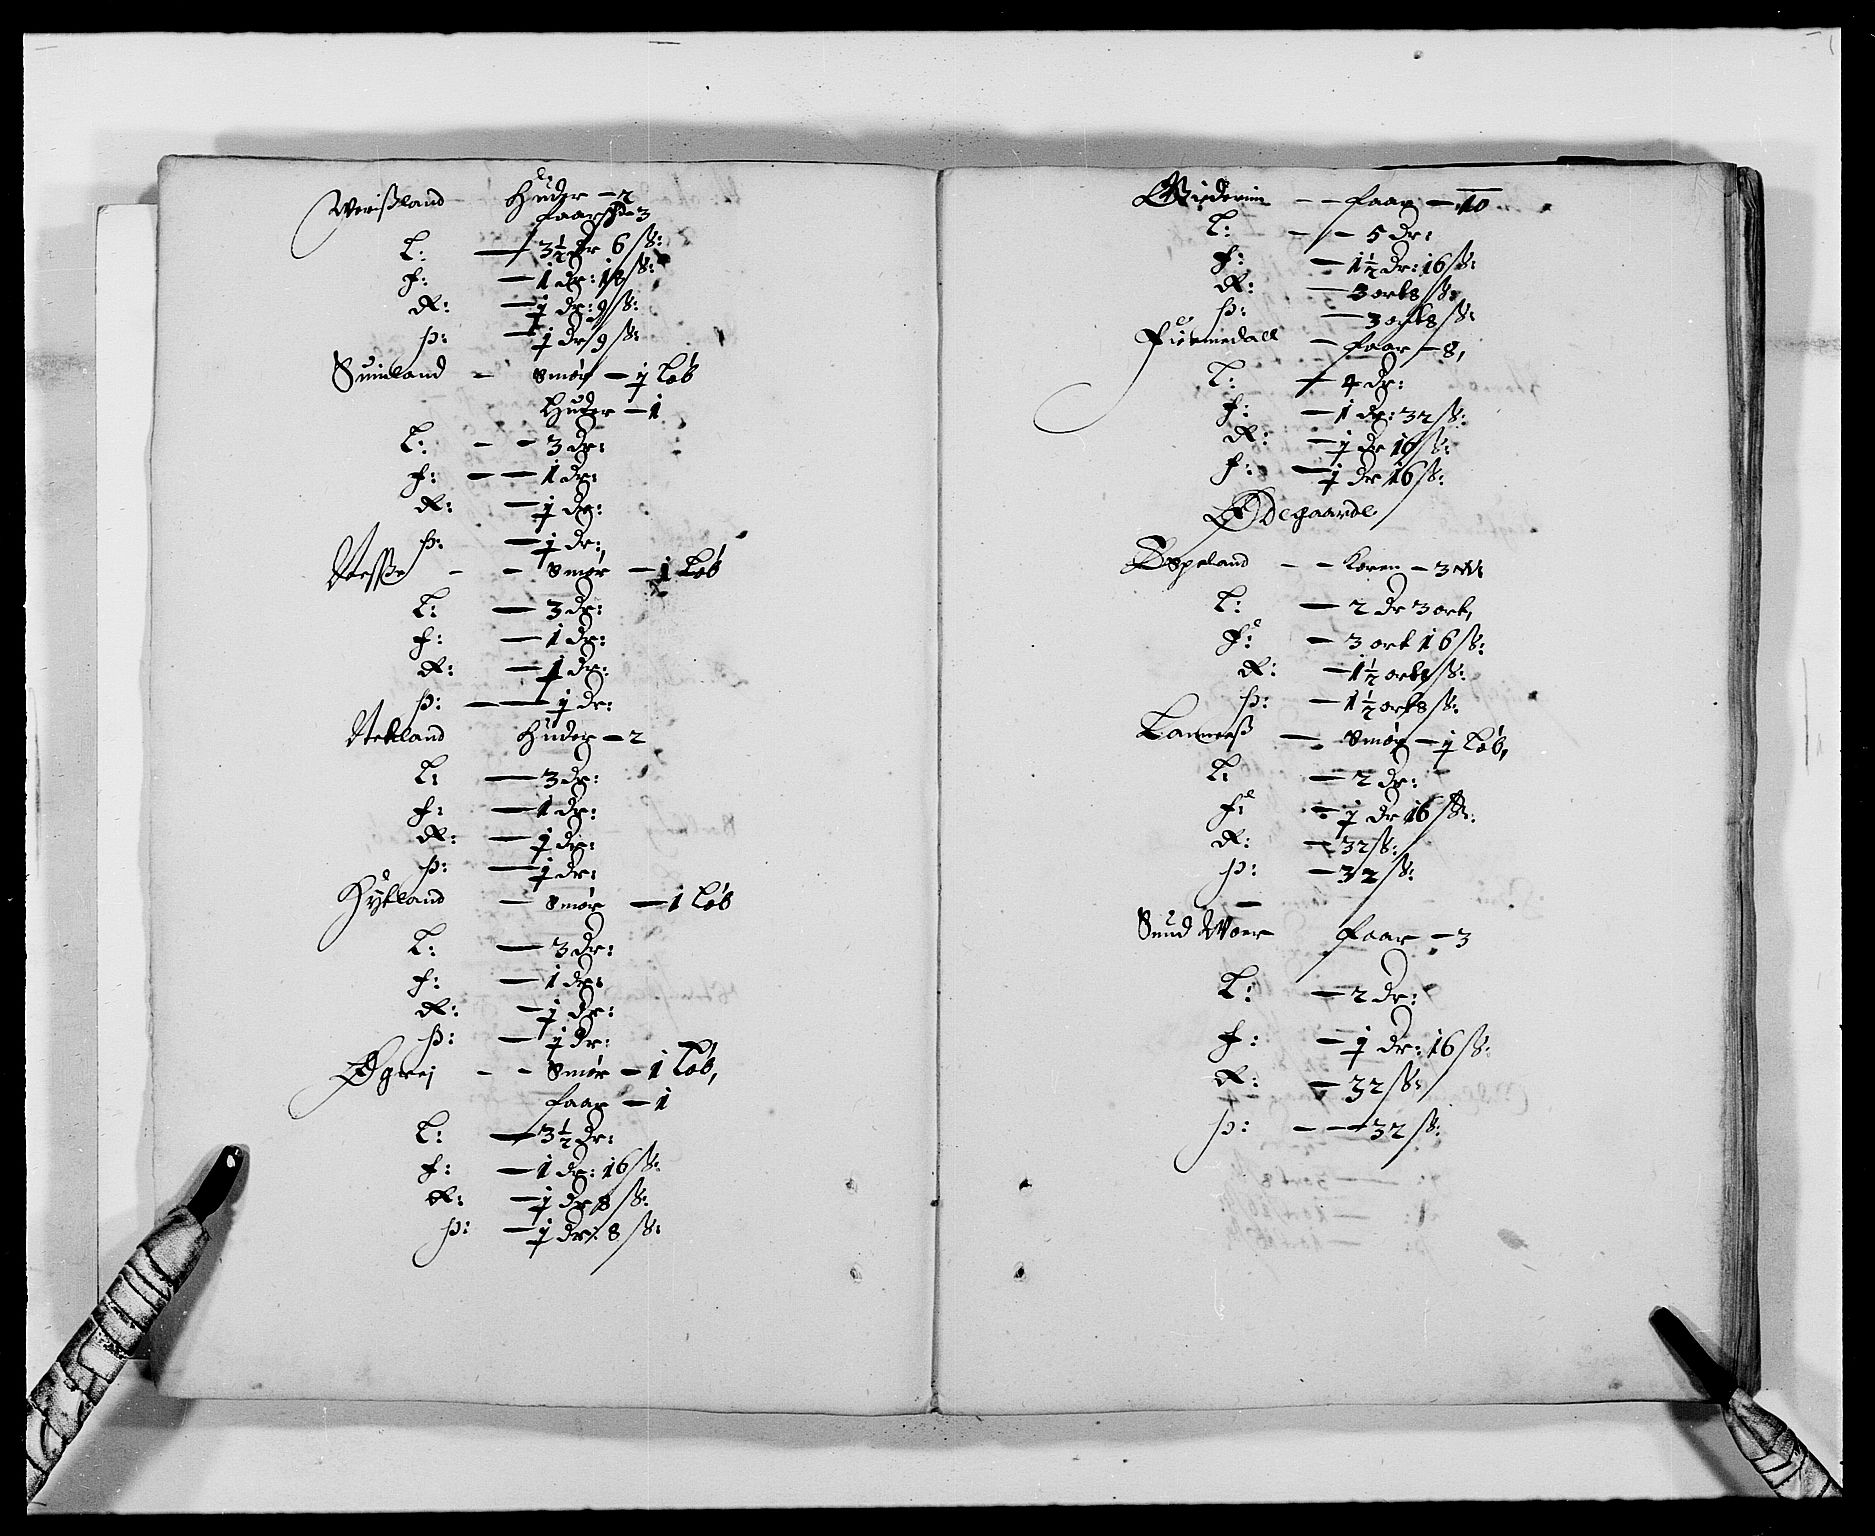 Werißland - Huder - 2
faar - 3
L: - 3½ dr 6 ß:
f: - 1 dr: 18 ß:
R: - ½ dr: 9 ß:
þ: - ½ dr 9 ß:
Suinland - Smør - ½ Løb
Huder - 1
L: - - 3 dr:
f: - - 1 dr:
R: - ½ dr:
þ: - ½ dr:
- - Smør - 1 Løb
L: - 3 dr:
f: - 1 dr:
R: - ½ dr:
þ: - - ½ dr:
Netland Huder - 2
L: - 3 dr:
f: - 1 dr:
R: - ½ dr:
þ: - ½ dr:
Hylland - Smør - 1 Løb
L: - 3 dr:
f: - 1 dr:
R: - ½ dr:
þ: - ½ dr:
Øgrej - - Smør - 1 Løb,
faar - 1
L: - 3½ dr:
f: - 1 dr: 16 ß:
R: - ½ dr 8 ß:
þ: - ½ dr: 8 ß:
- - faar - 10
L: - - 5 dr:
f: - 1½ dr: 16 ß:
R: - 3 ort 8 ß:
þ: - 3 ort 8 ß:
Fiermedall - faar - 8,
L: - 4 dr:
f: - 1 dr: 32 ß:
R: - ½ dr 16 ß:
þ: - ½ dr 16 ß:
Ødegaarde
Espeland - - Koren - 3
L: - 2 dr 3 ort,
f: - 3 ort 16 ß:
R: - 1½ ort 8 ß:
þ: - 1½ ort 8 ß:
Lanneß - Smør - ½ Løb,
L: - 2 dr:
f: - ½ dr 16 ß:
R: - 32 ß:
þ: - 32 ß:
Sund faar - 3
L: - 2 dr:
f: - ½ dr: 16 ß:
R: - 32 ß:
þ: - - 32 ß: